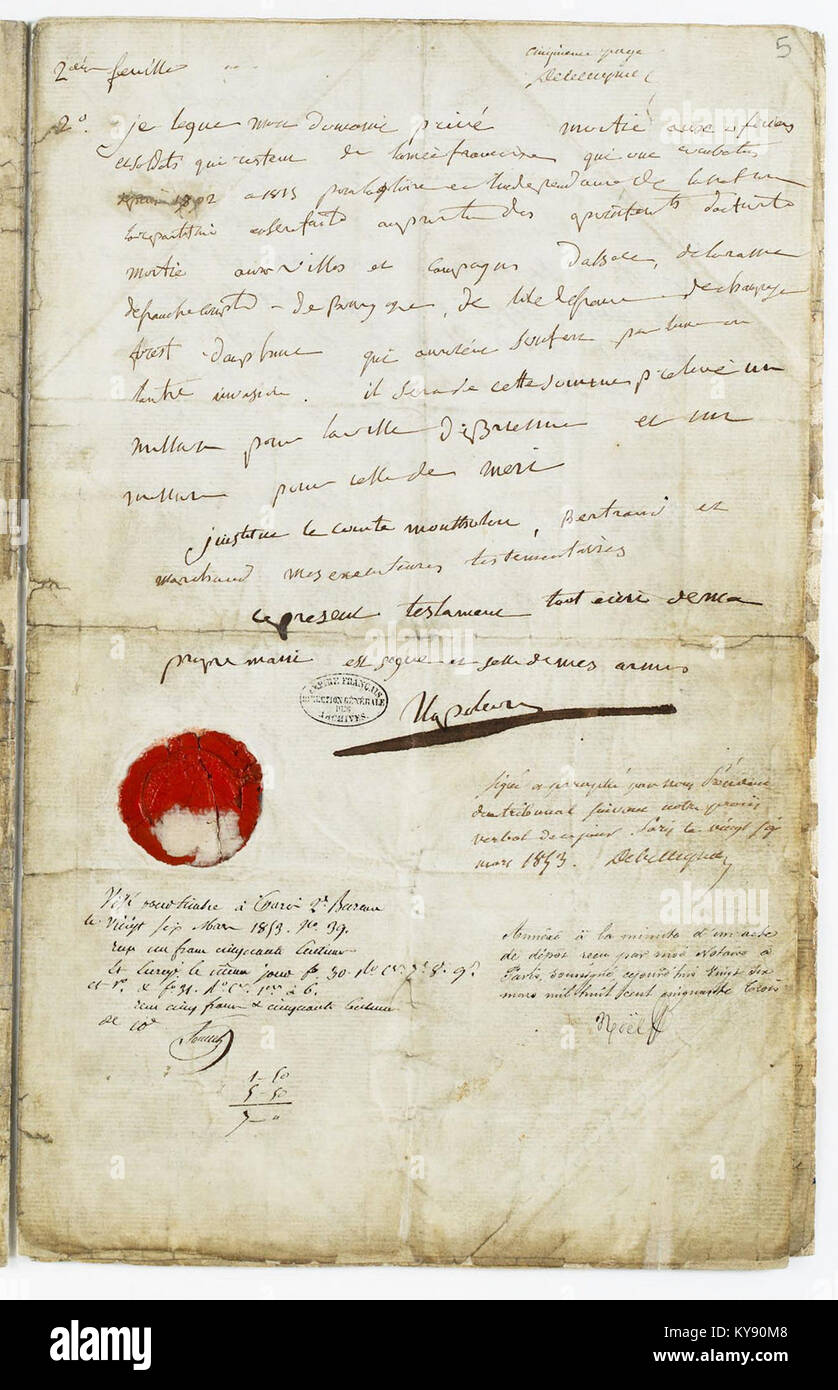 5
cinquieme page
2eme feuille
2o. je legue mon domaine privé moitié aux officiers
et soldats qui restent de l'armée francaise qui ont combatus
depuis 1792 a 1815 pour la gloire et l'independance de la nation
la repartition en sera faite au prorata des apointements d'activité
moitié aux villes et campagnes d'alsace, de loraine
de franche compté de Bourgogne, de l'ile de france de champagne
forest dauphiné qui auroient soufert par l'une ou
l'autre invasion. il sera de cette somme prelevé un
million pour la ville de Brienne et un
million pour celle de meri
j'institue le comte montholon, Bertrand et
marchand mes executeures testementaires
ce present testament tout ecrit de ma
propre main est signé et sellé de mes armes
Napoleon
EMPIRE FRANÇAIS
DIRECTION GÉNÉRALE
DES
ARCHIVES.
Signé et paraphé par nous Président
du tribunal suivant notre procès
verbal de ce jour. Paris le vingt six
mars 1853.
Visé pour timbre à Paris 2e Bureau
le vingt six Mars 1853. No. 39.
reçu un franc cinquante centimes
et Enreg. le même jour fo. 30
reçu cinq francs & cinquante centimes
Annexé à la minute d'un acte
de dépôt reçu par moi Notaire à
Paris, soussigné, cejourd'hui vingt six
mars mil huit cent cinquante trois
Noël
1-50
5-50
7-"
alamy
Image ID: KY90M8
www.alamy.com